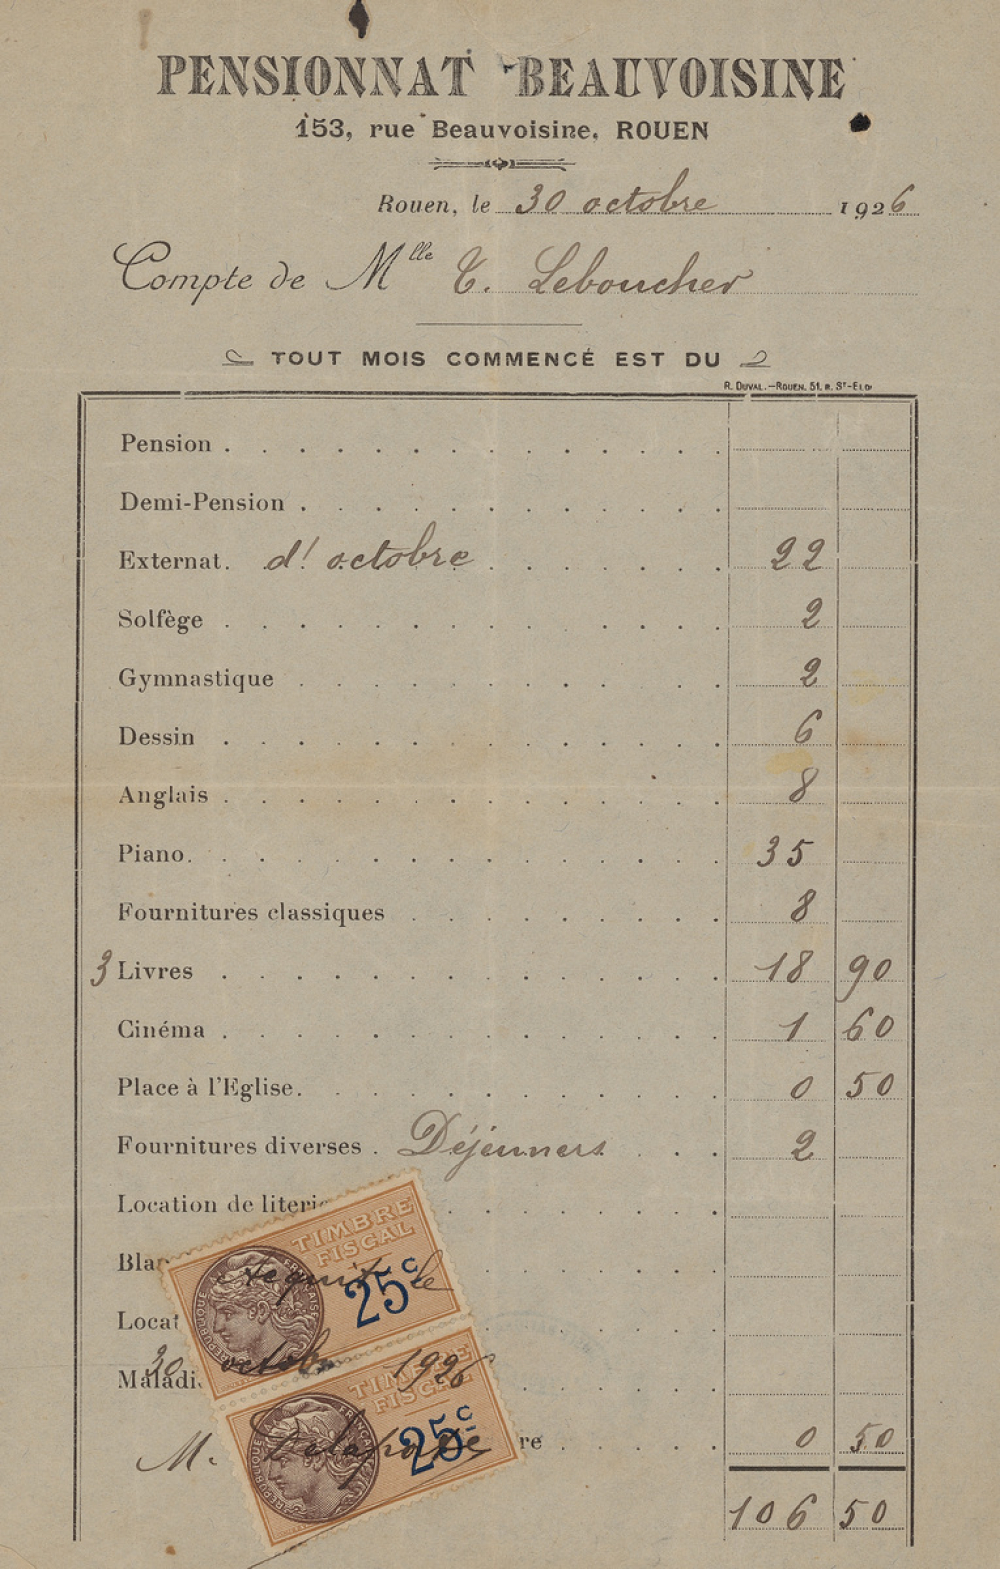 PENSIONNAT BEAUVOISINE
153, rue Beauvoisine, ROUEN
Rouen, le 30 octobre 1926
Compte de Mlle T. Leboucher
TOUT MOIS COMMENCÉ EST DU
R. DUVAL.—ROUEN. 51, R. ST-ELOI
Pension
Demi-Pension
Externat. d'octobre 22
Solfège 2
Gymnastique 2
Dessin 6
Anglais 8
Piano. 35
Fournitures classiques 8
3 Livres 18 90
Cinéma 1 60
Place à l'Eglise. 0 50
Fournitures diverses. Déjeuners 2
Location de literie
TIMBRE FISCAL
Bla
Acquit le
25c
RÉPUBLIQUE FRANÇAISE
Locat
30 octob 1926
Maladi
TIMBRE FISCAL
25c
RÉPUBLIQUE FRANÇAISE
M. Delaporte
re 0 50
106 50